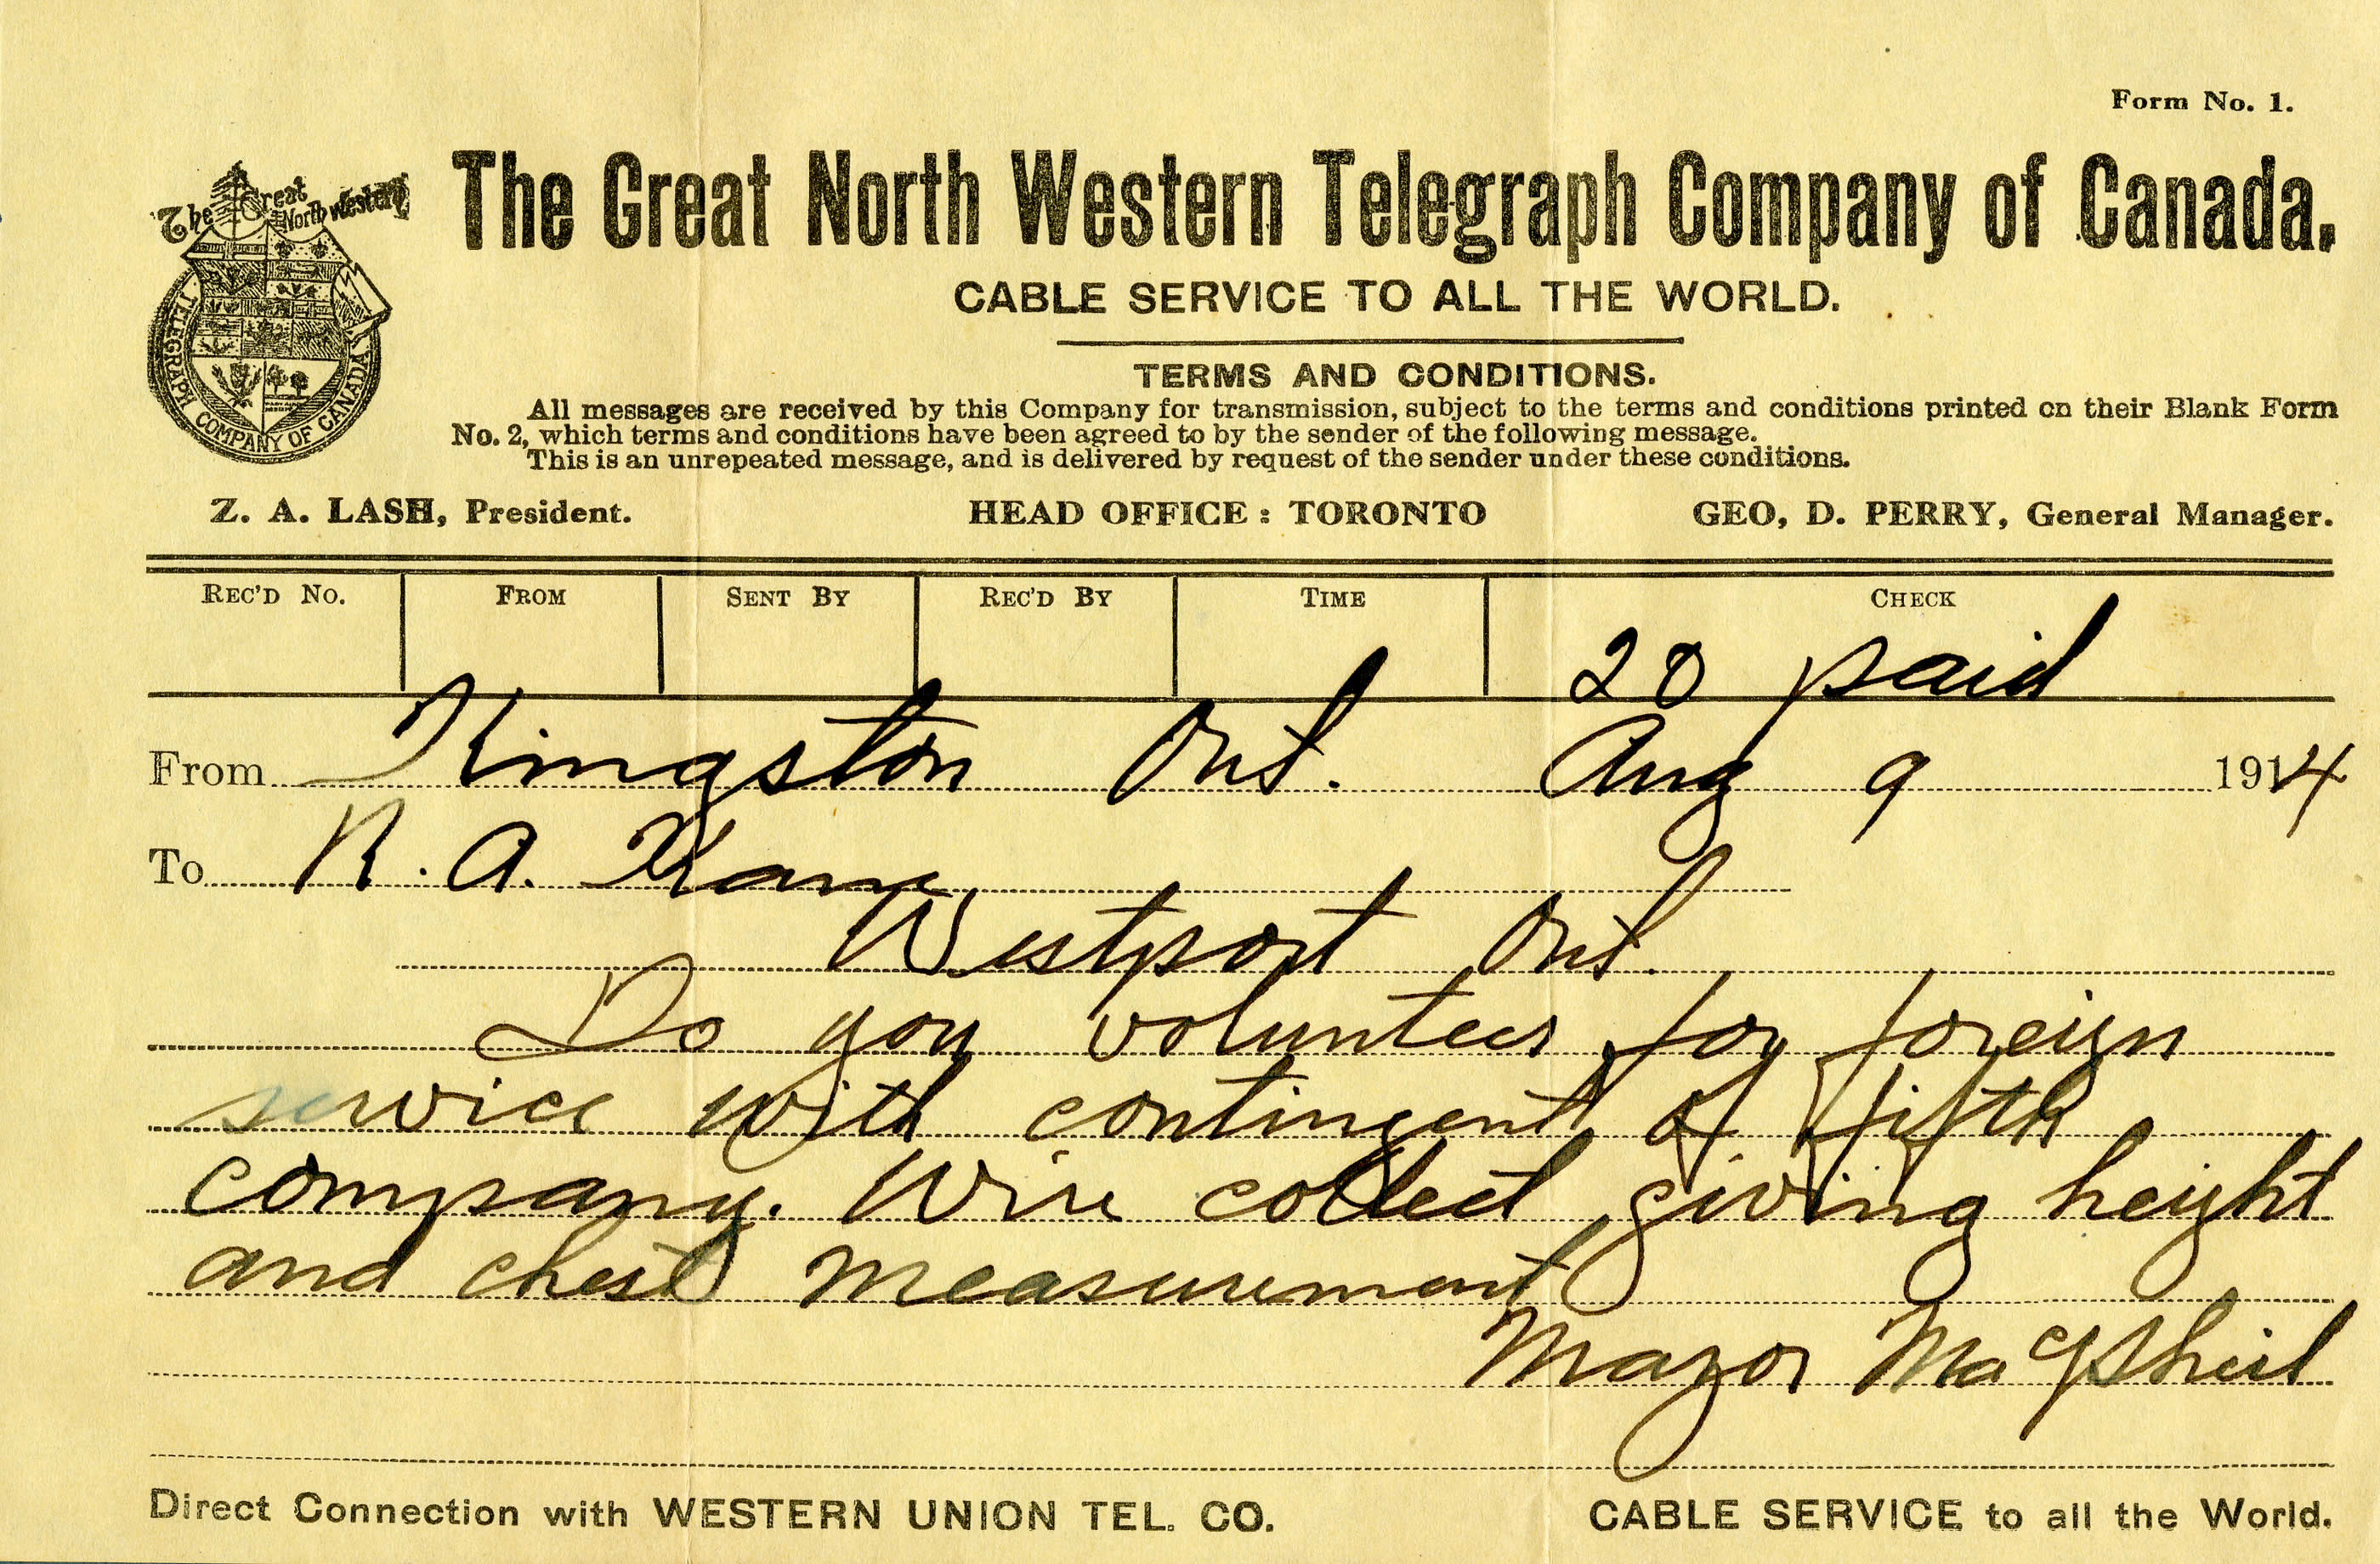 Form No. 1.
The Great North Western
TELEGRAPH COMPANY OF CANADA
The Great North Western Telegraph Company of Canada.
CABLE SERVICE TO ALL THE WORLD.
TERMS AND CONDITIONS.
All messages are received by this Company for transmission, subject to the terms and conditions printed on their Blank Form
No. 2, which terms and conditions have been agreed to by the sender of the following message.
This is an unrepeated message, and is delivered by request of the sender under these conditions.
Z. A. LASH, President. HEAD OFFICE : TORONTO GEO, D. PERRY, General Manager.
REC'D NO. FROM SENT BY REC'D BY TIME CHECK
20 paid
From Kingston Ont. Aug 9 1914
To R. A. Kane
Westport Ont.
Do you volunteer for foreign
service with contingent of fifth
company. Wire collect giving height
and chest measurement
Major MacPheil
Direct Connection with WESTERN UNION TEL. CO. CABLE SERVICE to all the World.